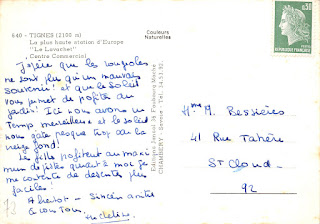 640 - TIGNES (2100 m)
La plus haute station d'Europe
"Le Lavachet"
Centre Commercial
Couleurs
Naturelles
0,30
J'espère que les
ne sont plus qu'un mauvais
souvenir! et que le soleil
vous permet de profiter du
jardin! Ici nous avons un
temps merveilleux et le soleil
nous gâte presque trop car la
neige fond!
Les filles profitent au maxi-
mum de quant à moi je
me contente de descentes plus
faciles!
A bientôt - Sincères amitiés
à vous tous.
Mme A. Bessières
41 Rue Tahère
St Cloud
92